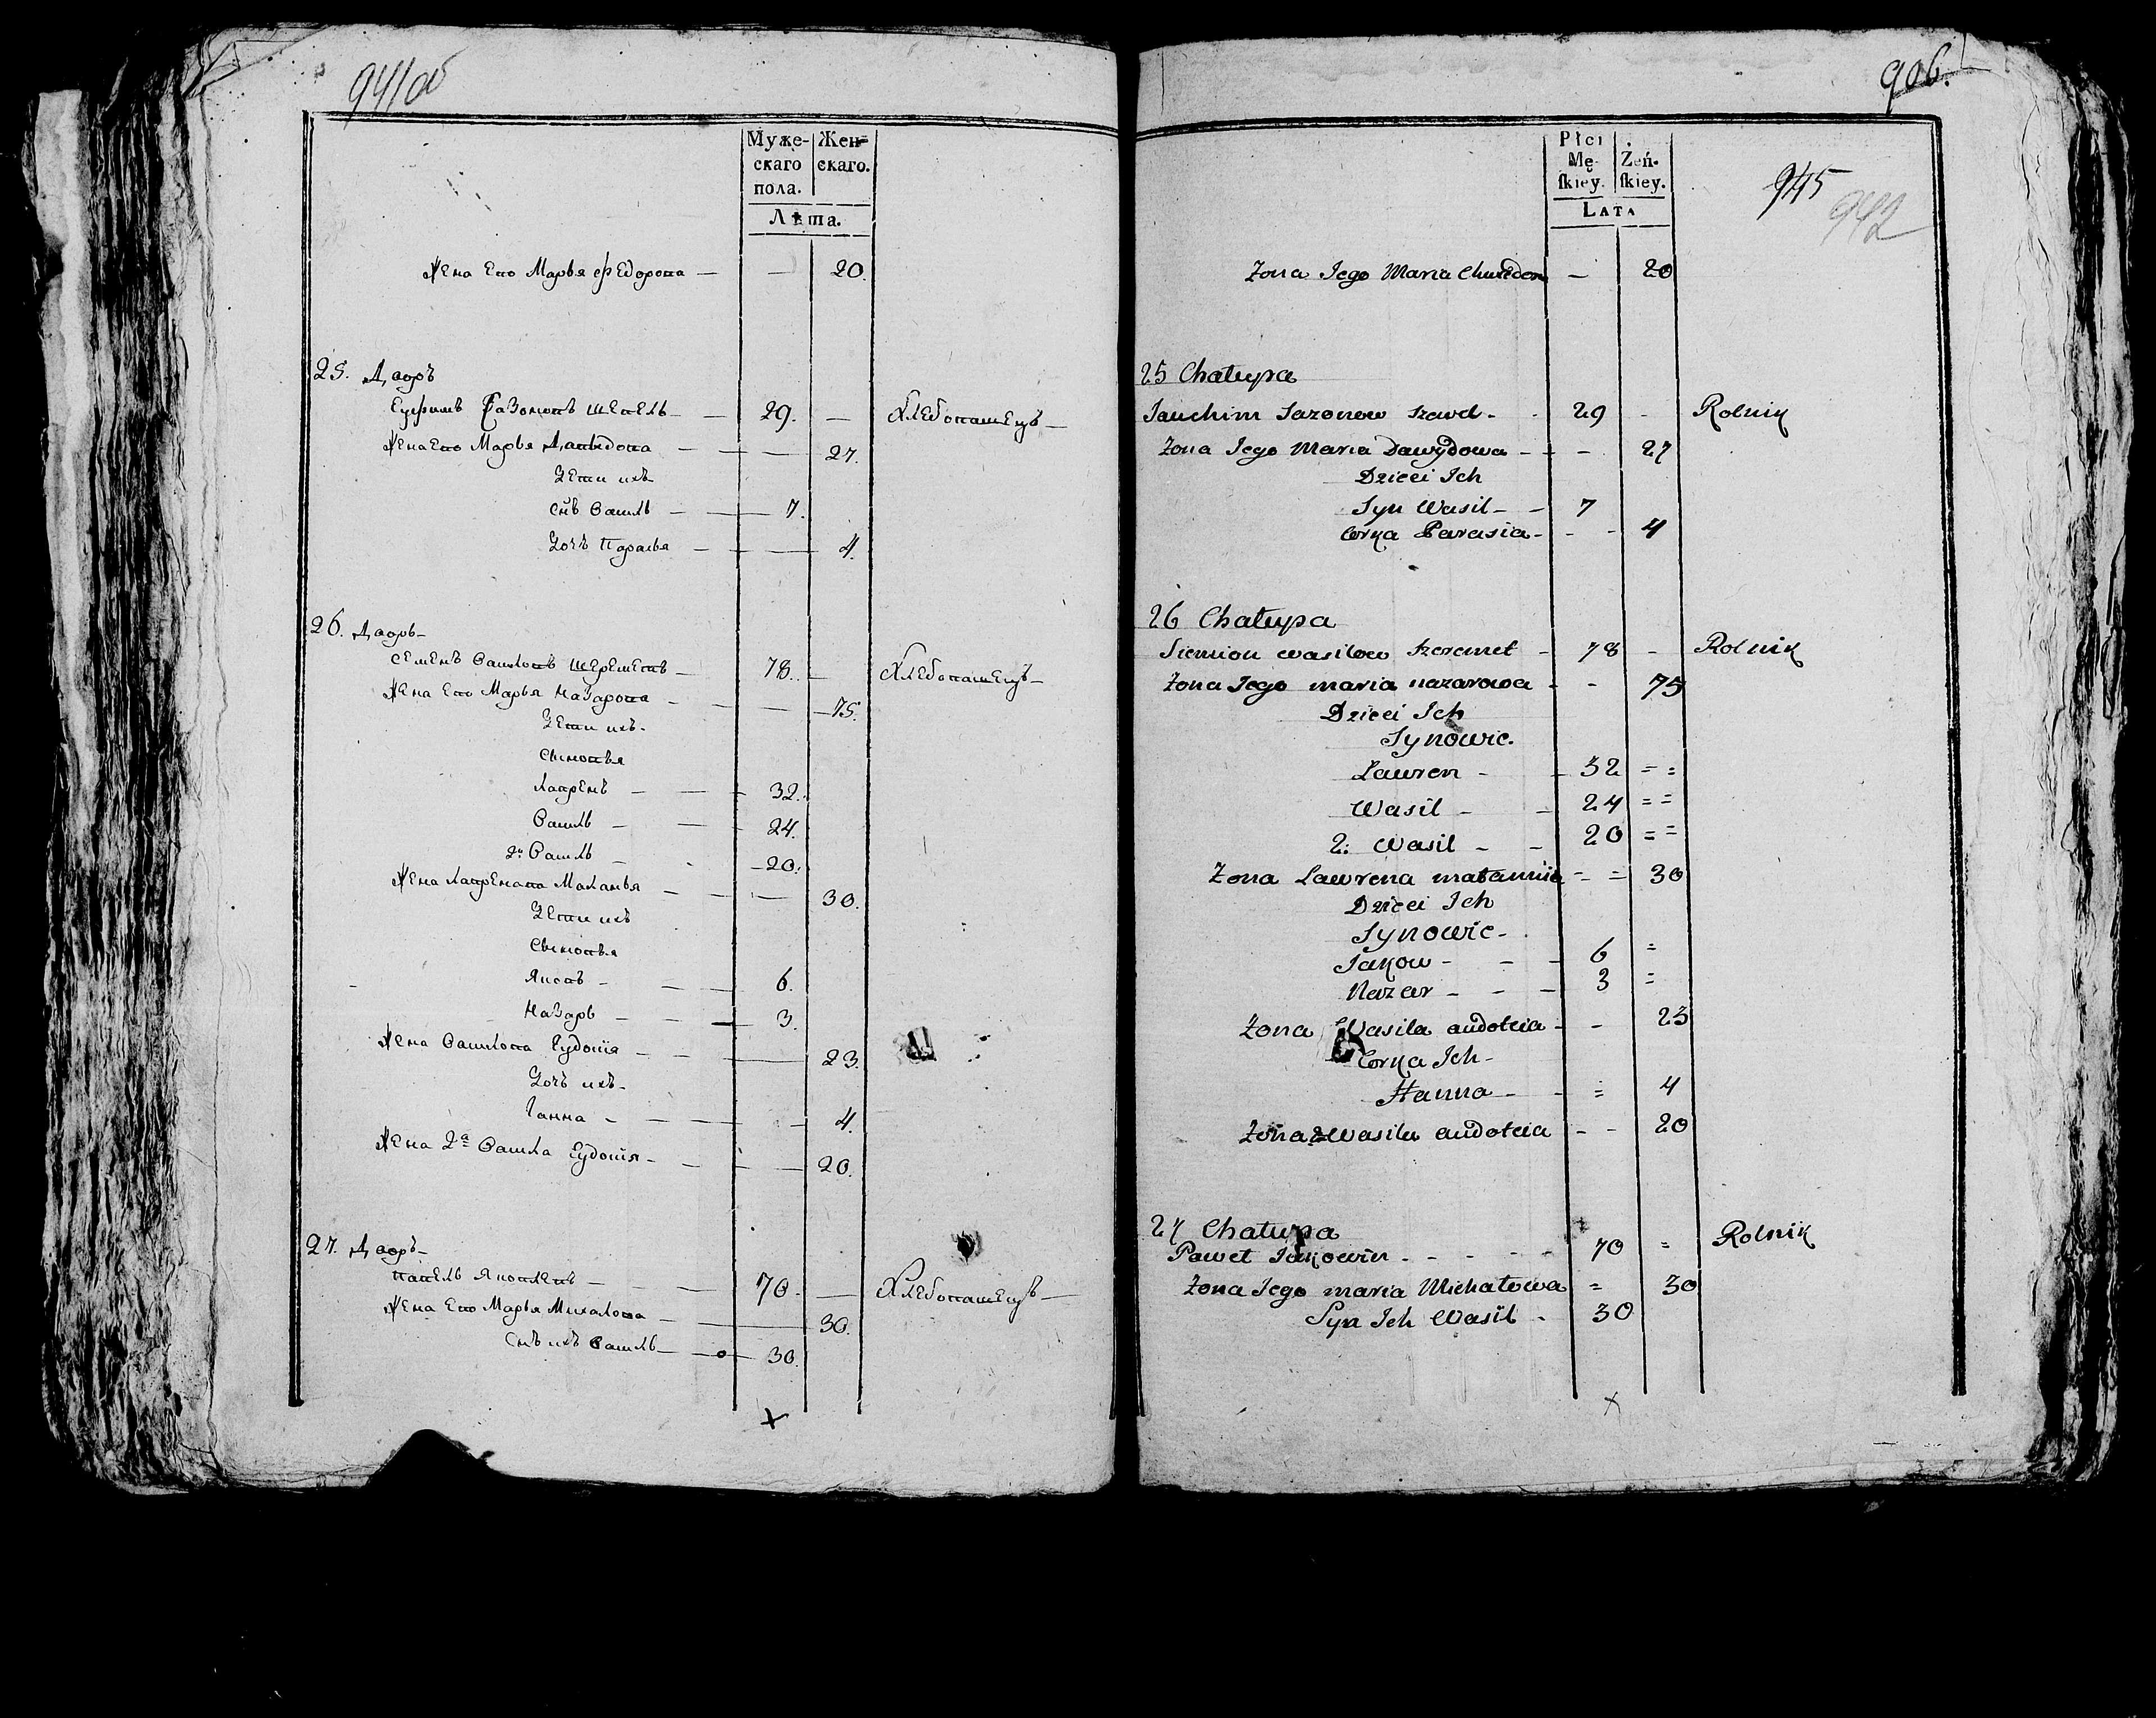 94/об
Муже-
скаго
пола.
Жен=
скаго.
Лѣта.
Жена Его Марья Федорова — — 20.
25. Дворъ
Еуфимъ Сазоновъ — 29. — Хлебопашецъ —
Жена Его Марья Давыдова — — — 27.
Дети ихъ
Снъ Василь — — 7.
Дочъ Парасья — — — 4.
26. Дворъ —
Семенъ Василовъ Шереметъ — 78. — Хлебопашецъ —
Жена Его Марья Назарова — — — 75.
Дети ихъ —
Сыновья
Лавренъ — — 32.
Василь — — 24.
2й Василь — - 20.
Жена Лавренова Маланья — — 30.
Дети ихъ
Сыновья
Яковъ — — 6.
Назаръ — — 3.
Жена Василова Еудокія — — — 23.
Дочъ ихъ —
Ганна — — — 4.
Жена 2а Васила Еудокія — — — 20.
27. Дворъ —
Павелъ — — 70. — Хлебопашецъ —
Жена Его Марья Михалова — — 30.
Снъ ихъ Василь — — 30.
×
906.
Płci
Mę-
ſkiey.
Żeń-
ſkiey.
LATA
945
942
Żona Jego Maria — 20
25 Chałupa
Jauchim Sazonow - - 29 - Rolnik
Żona Jego Maria Dawydowa - - - 27
Dzieci Ich
Syn Wasil - - 7
Corka Parasia - - - 4
26 Chałupa
Siemion Wasilow Szeremet - 78 - Rolnik
Żona Jego Maria nazarowa - - 75
Dzieci Ich
Synowie.
Lawren - - 32 = =
Wasil - - 24 = =
2: Wasil - - 20 = =
Żona Lawrena małannia - = 30
Dzieci Ich
Synowie -
Jakow - - - 6 =
Nazar - - - 3 =
Żona Wasila audotcia - - 23
Corka Ich -
Hanna - - = 4
Żona 2 Wasila audotcia - - 20
27 Chałupa
Paweł - - - - 70 = Rolnik
Żona Jego maria Michałowa = 30
Syn Ich Wasil - 30
×